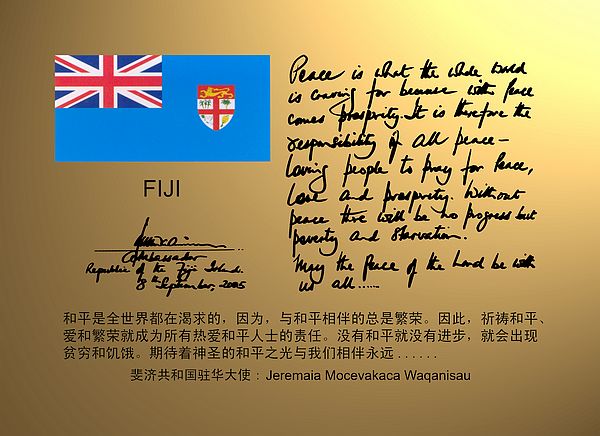 FIJI
Ambassador
Republic of the Fiji Islands.
8th September, 2005
Peace is what the whole world
is craving for because with Peace
comes Prosperity. It is therefore the
responsibility of all peace-
loving people to pray for Peace,
love and prosperity. Without
peace there will be no progress but
poverty and starvation.
May the Peace of the Lord be with
us all.....
和平是全世界都在渴求的，因为，与和平相伴的总是繁荣。因此，祈祷和平、
爱和繁荣就成为所有热爱和平人士的责任。没有和平就没有进步，就会出现
贫穷和饥饿。期待着神圣的和平之光与我们相伴永远 . . . . . .
斐济共和国驻华大使：Jeremaia Mocevakaca Waqanisau